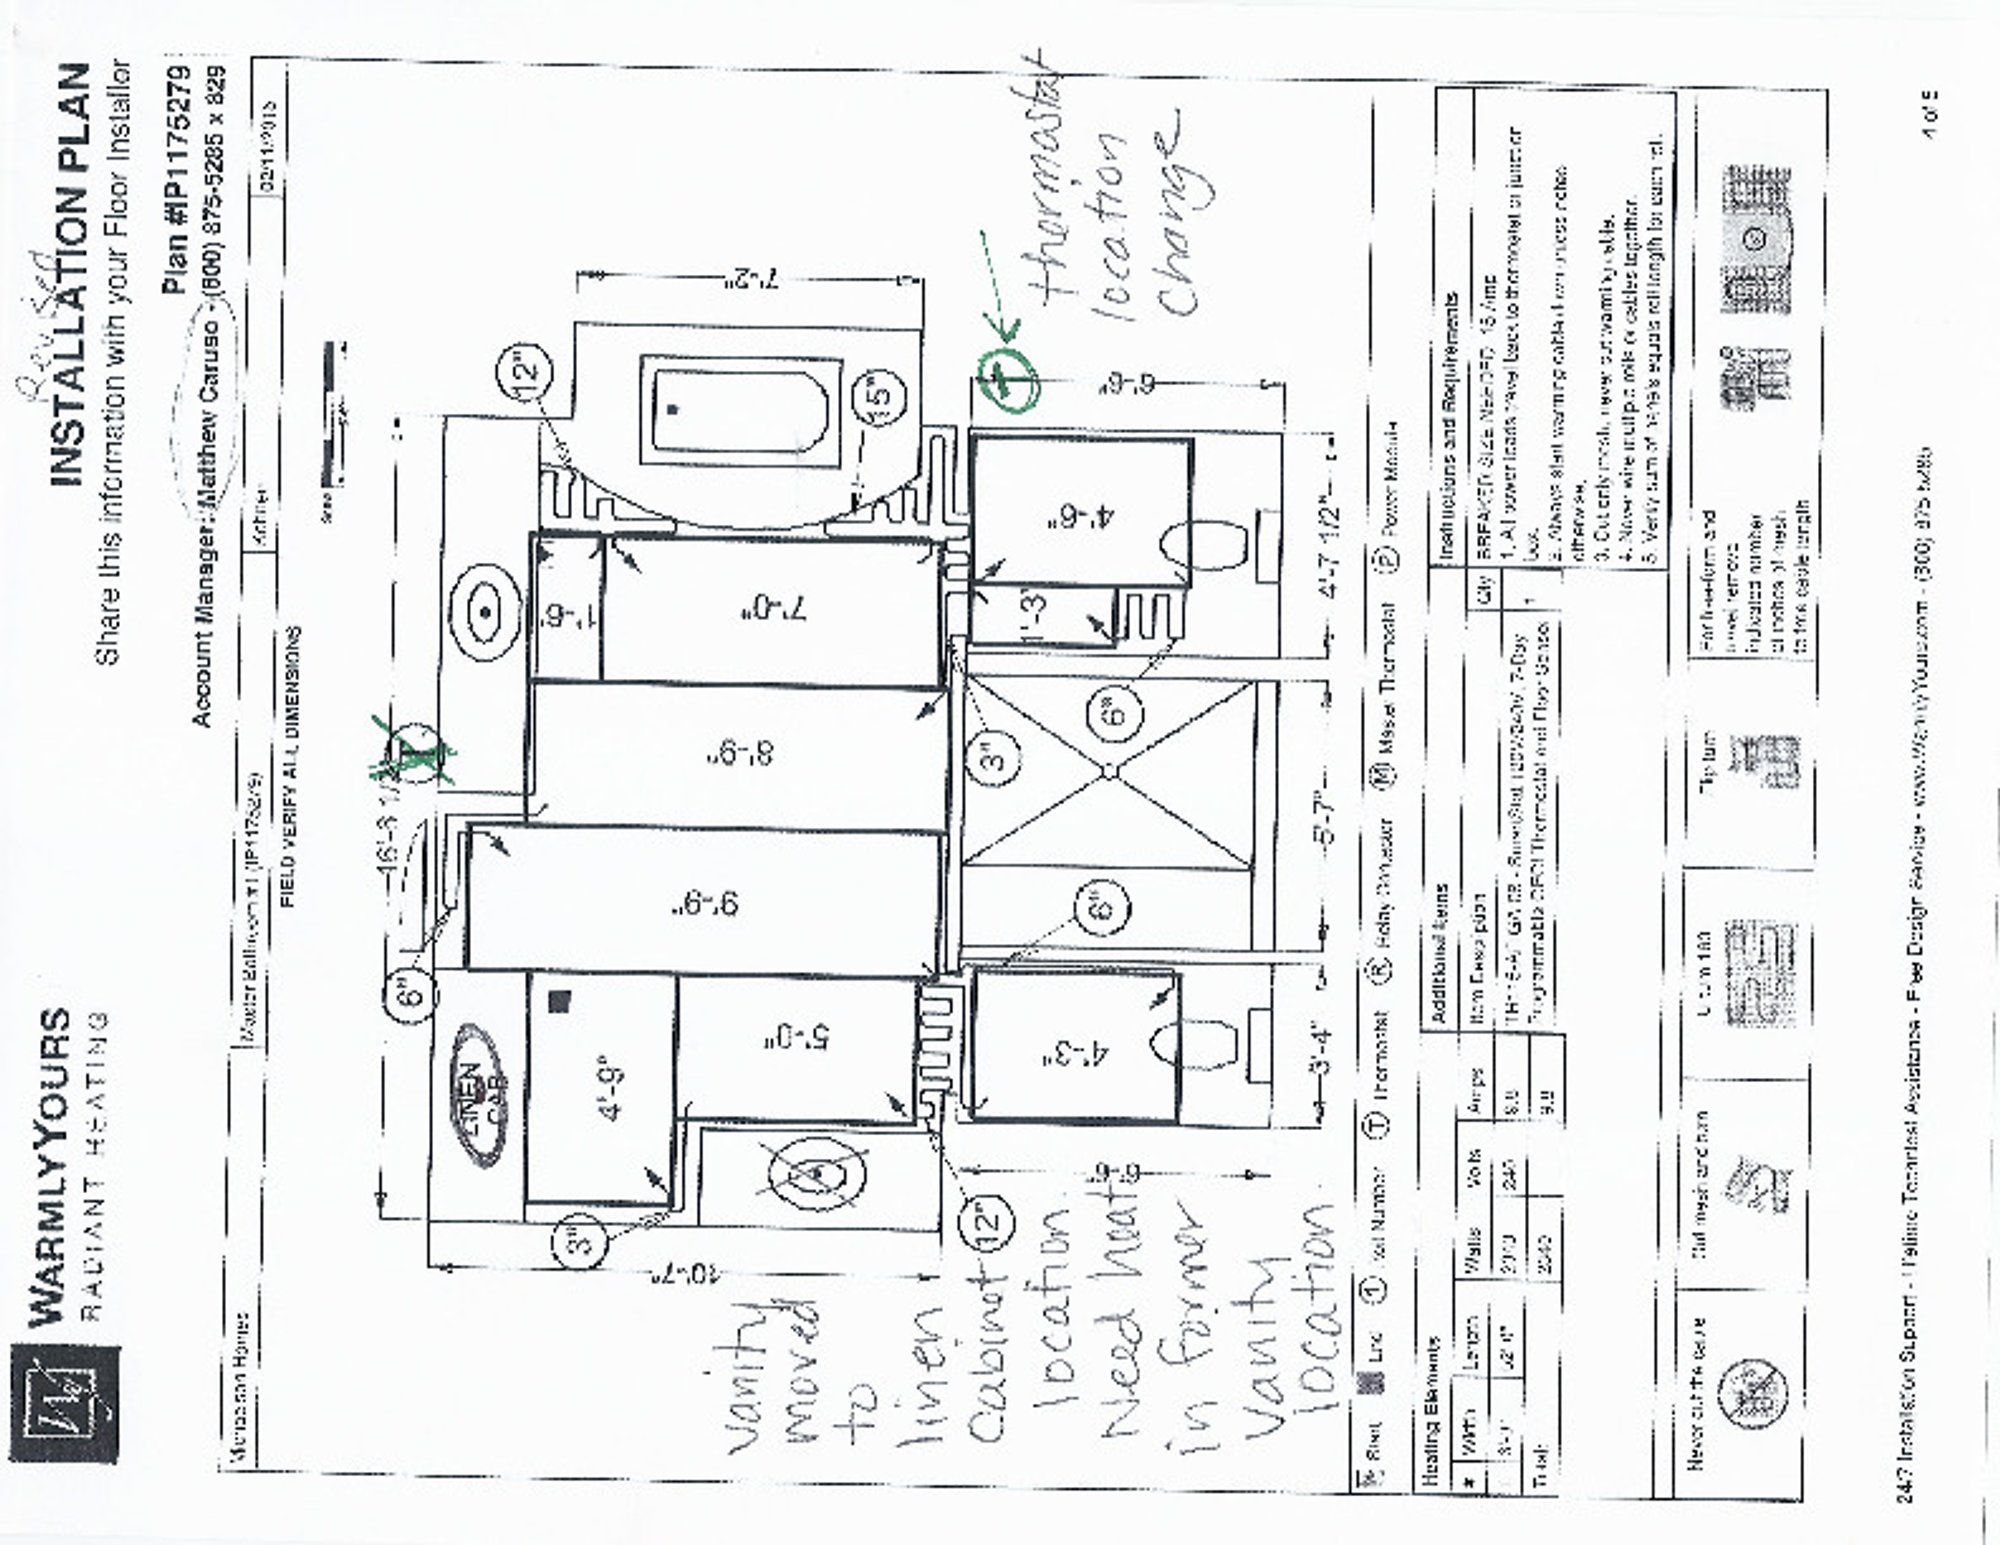 WARMLYYOURS
RADIANT HEATING
Revised
INSTALLATION PLAN
Share this information with your Floor Installer
Plan #IP1175279
Account Manager: Matthew Caruso - (800) 875-5285 x 829
Master Bathroom #1 (IP1175279)
FIELD VERIFY ALL DIMENSIONS
16'-3 1/
T
6"
12"
7'-2"
15"
LINEN
CAB
4'-9"
5'-0"
9'-9"
8'-9"
1'-6"
7'-0"
3"
10'-7"
12"
6"
3"
6"
4'-3"
1'-3"
4'-6"
6'-6"
6'-6"
3'-4"
5'-7"
4'-7 1/2"
T
thermostat
location
change
vanity
moved
to
linen
cabinet
location.
Need heat
in former
vanity
location
Start
End
1 Roll Number
T Thermostat
R Relay Contactor
M Master Thermostat
P Power Module
Heating Elements
# Width Length Watts Volts Amps
240
Total:
Additional Items
Item Description
Qty
1
Programmable GFCI Thermostat and Floor Sensor
Instructions and Requirements
BREAKER SIZE NEEDED: 15 Amp
1. All power leads travel back to thermostat or junction
box.
2. Always start warming cable down unless noted
otherwise.
3. Cut only mesh, never cut warming cable.
4. Never wire multiple rolls or cables together.
Never cut the cable
Cut mesh and turn
U turn 180
Flip turn
For free-form and
indicated number
of inches of mesh
to free cable length
24/7 Installation Support - Lifetime Technical Assistance - Free Design Service - www.WarmlyYours.com - (800) 875-5285
4 of 5